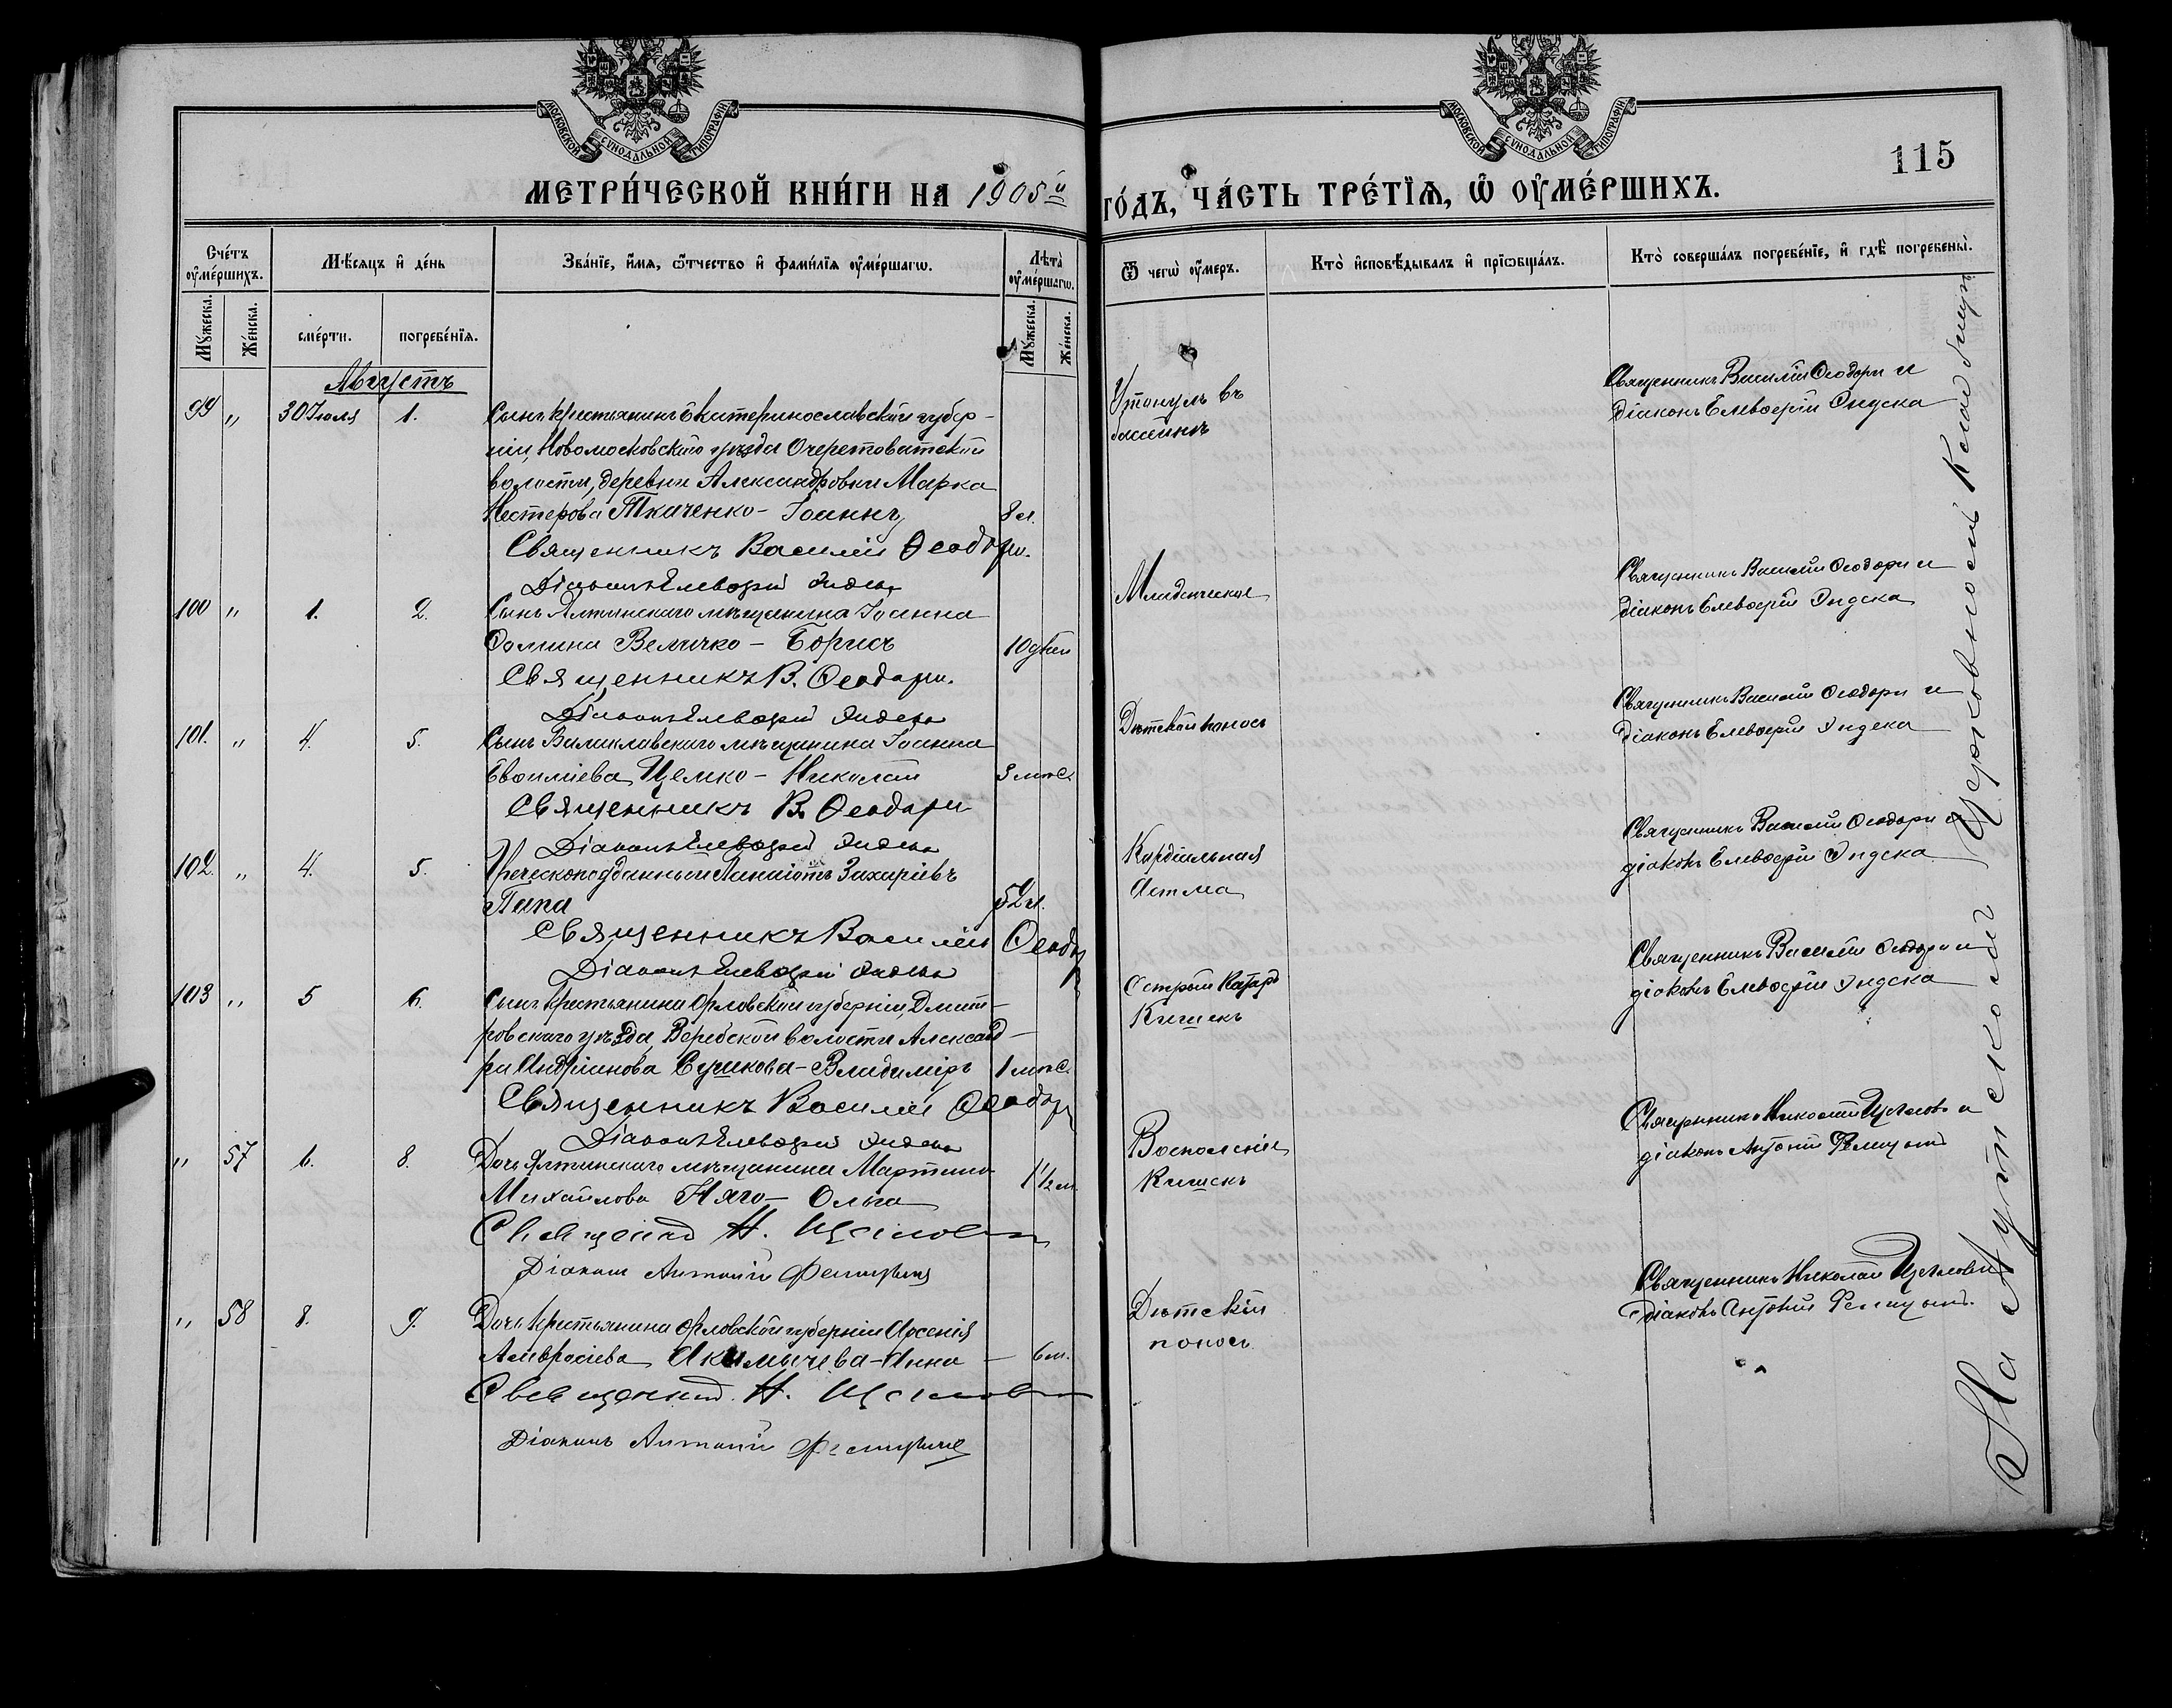 МОСКОВСКОЙ СУНОДАЛЬНОЙ ТИПОГРАФІИ
МОСКОВСКОЙ СУНОДАЛЬНОЙ ТИПОГРАФІИ
115
МЕТРИ́ЧЕСКОЙ КНИ́ГИ НА 1905й
ГО́ДЪ, ЧА́СТЬ ТРЕ́ТЇѦ, Ѡ ОУМЕ́РШИХЪ.
Сче́тъ оуме́ршихъ.
Мѣсяцъ и де́нь
Зва́нїе, и́мя, ѻтчество и фами́лїя оуме́ршагѡ.
Лѣта̀ оуме́ршагѡ.
Ѿ чегѡ̀ оу́меръ.
Кто̀ исповѣ́дывалъ и прїѡбща́лъ.
Кто̀ соверша́лъ погребе́нїе, и гдѣ̀ погребены̀.
Му́жеска. Же́нска. сме́рти. погребе́нїя. Му́жеска. Же́нска.
Августъ
99 " 30 Іюля 1.
Сынъ крестьянина Екатеринославской губер-
ніи, Новомосковскаго уѣзда Очеретоватской
волости, деревни Александровки Марка
Нестерова Ткаченко - Іоаннъ 8 л.
Священникъ Василій Ѳеодори.
Діаконъ Елевферій Эндека
Утонулъ въ
бассейнѣ
Священникъ Василій Ѳеодори и
діаконъ Елевферій Эндека
100 " 1. 2.
Сынъ Ялтинскаго мѣщанина Іоанна
Ѳомина Величко - Борисъ 10 дней
Священникъ В. Ѳеодори.
Діаконъ Елевферій Эндека
Младенческое
Священникъ Василій Ѳеодори и
діаконъ Елевферій Эндека
101. " 4. 5.
Сынъ Балаклавскаго мѣщанина Іоанна
Цемко - Николай 3 мѣс.
Священникъ В. Ѳеодори
Діаконъ Елевферій Эндека
Дѣтскій поносъ
Священникъ Василій Ѳеодори и
діаконъ Елевферій Эндека
102. " 4. 5.
Греческоподданный Захаріевъ
Папа 52 л.
Священникъ Василій Ѳеодори
Діаконъ Елевферій Эндека
Кардіальная
Астма
Священникъ Василій Ѳеодори и
діаконъ Елевферій Эндека
103 " 5 6.
Сынъ крестьянина Орловской губерніи, Дмит-
ровскаго уѣзда, Веребской волости Александ-
ра Андріанова Сушкова - Владиміръ 1 мѣс.
Священникъ Василій Ѳеодори
Діаконъ Елевферій Эндека
Острый Катаръ
Кишекъ
Священникъ Василій Ѳеодори и
діаконъ Елевферій Эндека
" 57 6. 8.
Дочь Ялтинскаго мѣщанина Мартина
Михайлова Няго - Ольга 1½ л.
Священникъ Н. Щегловъ
Діаконъ Антоній
Воспаленіе
Кишекъ
Священникъ Николай Щегловъ и
діаконъ Антоній
" 58 8. 9.
Дочь крестьянина Орловской губерніи Арсенія
Амвросіева Акимычева - Анна - 6 м.
Священникъ Н. Щегловъ
Діаконъ Антоній
Дѣтскій
поносъ
Священникъ Николай Щегловъ и
діаконъ Антоній
На Аутскомъ Церковномъ Кладбищѣ